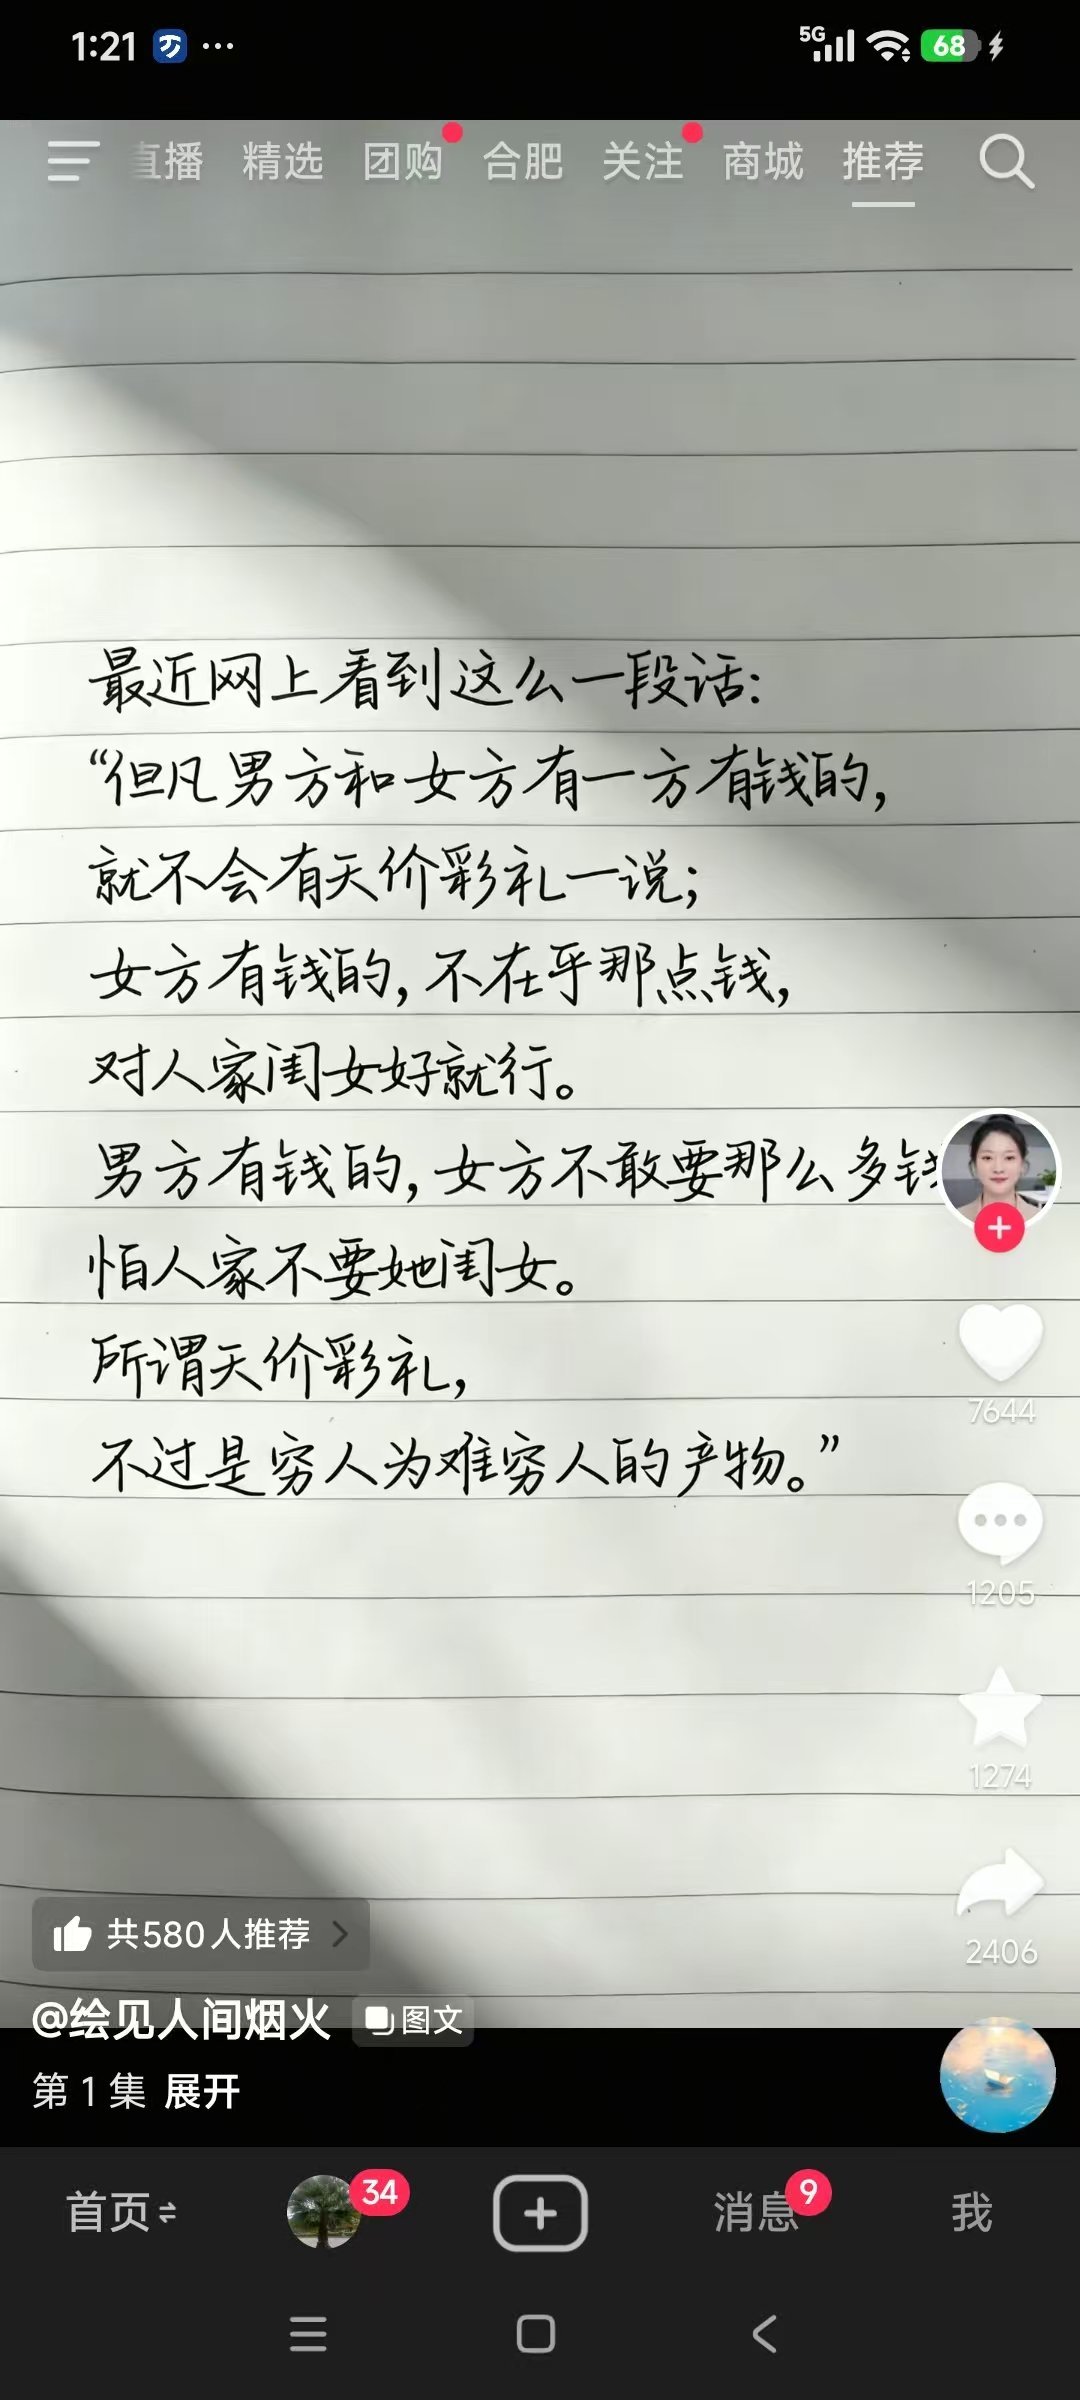 1:21
5G
68
直播 精选 团购 合肥 关注 商城 推荐
最近网上看到这么一段话：
“但凡男方和女方有一方有钱的，
就不会有天价彩礼一说；
女方有钱的，不在乎那点钱，
对人家闺女好就行。
男方有钱的，女方不敢要那么多钱
怕人家不要她闺女。
所谓天价彩礼，
不过是穷人为难穷人的产物。”
7644
1205
1274
2406
共580人推荐
@绘见人间烟火 图文
第1集 展开
首页 34 消息 9 我